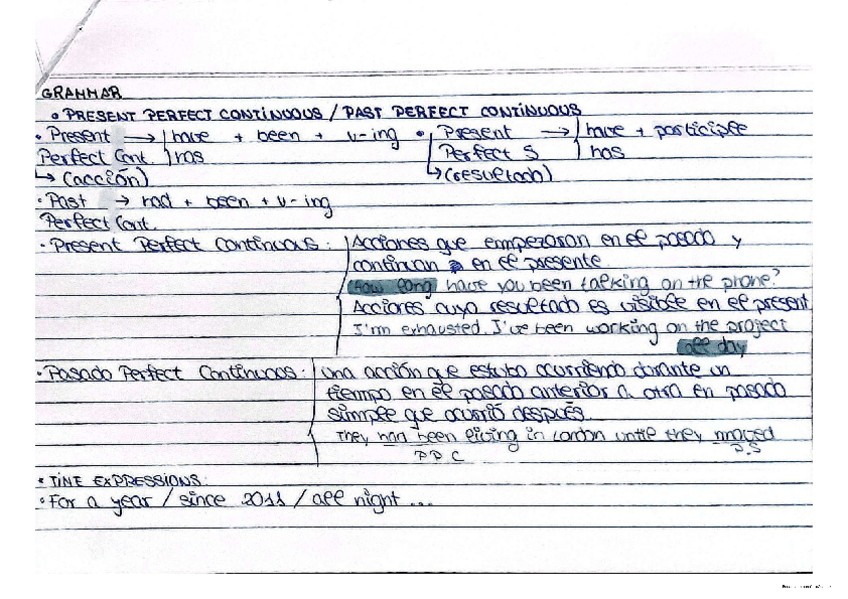 GRAMMAR
• PRESENT PERFECT CONTINUOUS / PAST PERFECT CONTINUOUS
• Present → have + been + v-ing • Present → have + participle
Perfect Cont. has Perfect S has
↳ (acción) ↳ (resultado)
• Past → had + been + v-ing
Perfect Cont.
• Present Perfect Continuous: Acciones que empezaron en el pasado y
continuan en el presente.
How long have you been talking on the phone?
Acciones cuyo resultado es visible en el present
I'm exhausted. I've been working on the project
all day
• Pasado Perfect Continuos: una acción que estubo ocurriendo durante un
tiempo en el pasado anterior a otra en pasado
simple que ocurrió después.
They had been living in London until they moved
P.P.C P.S
• TIME EXPRESSIONS:
• For a year / since 2011 / all night ...